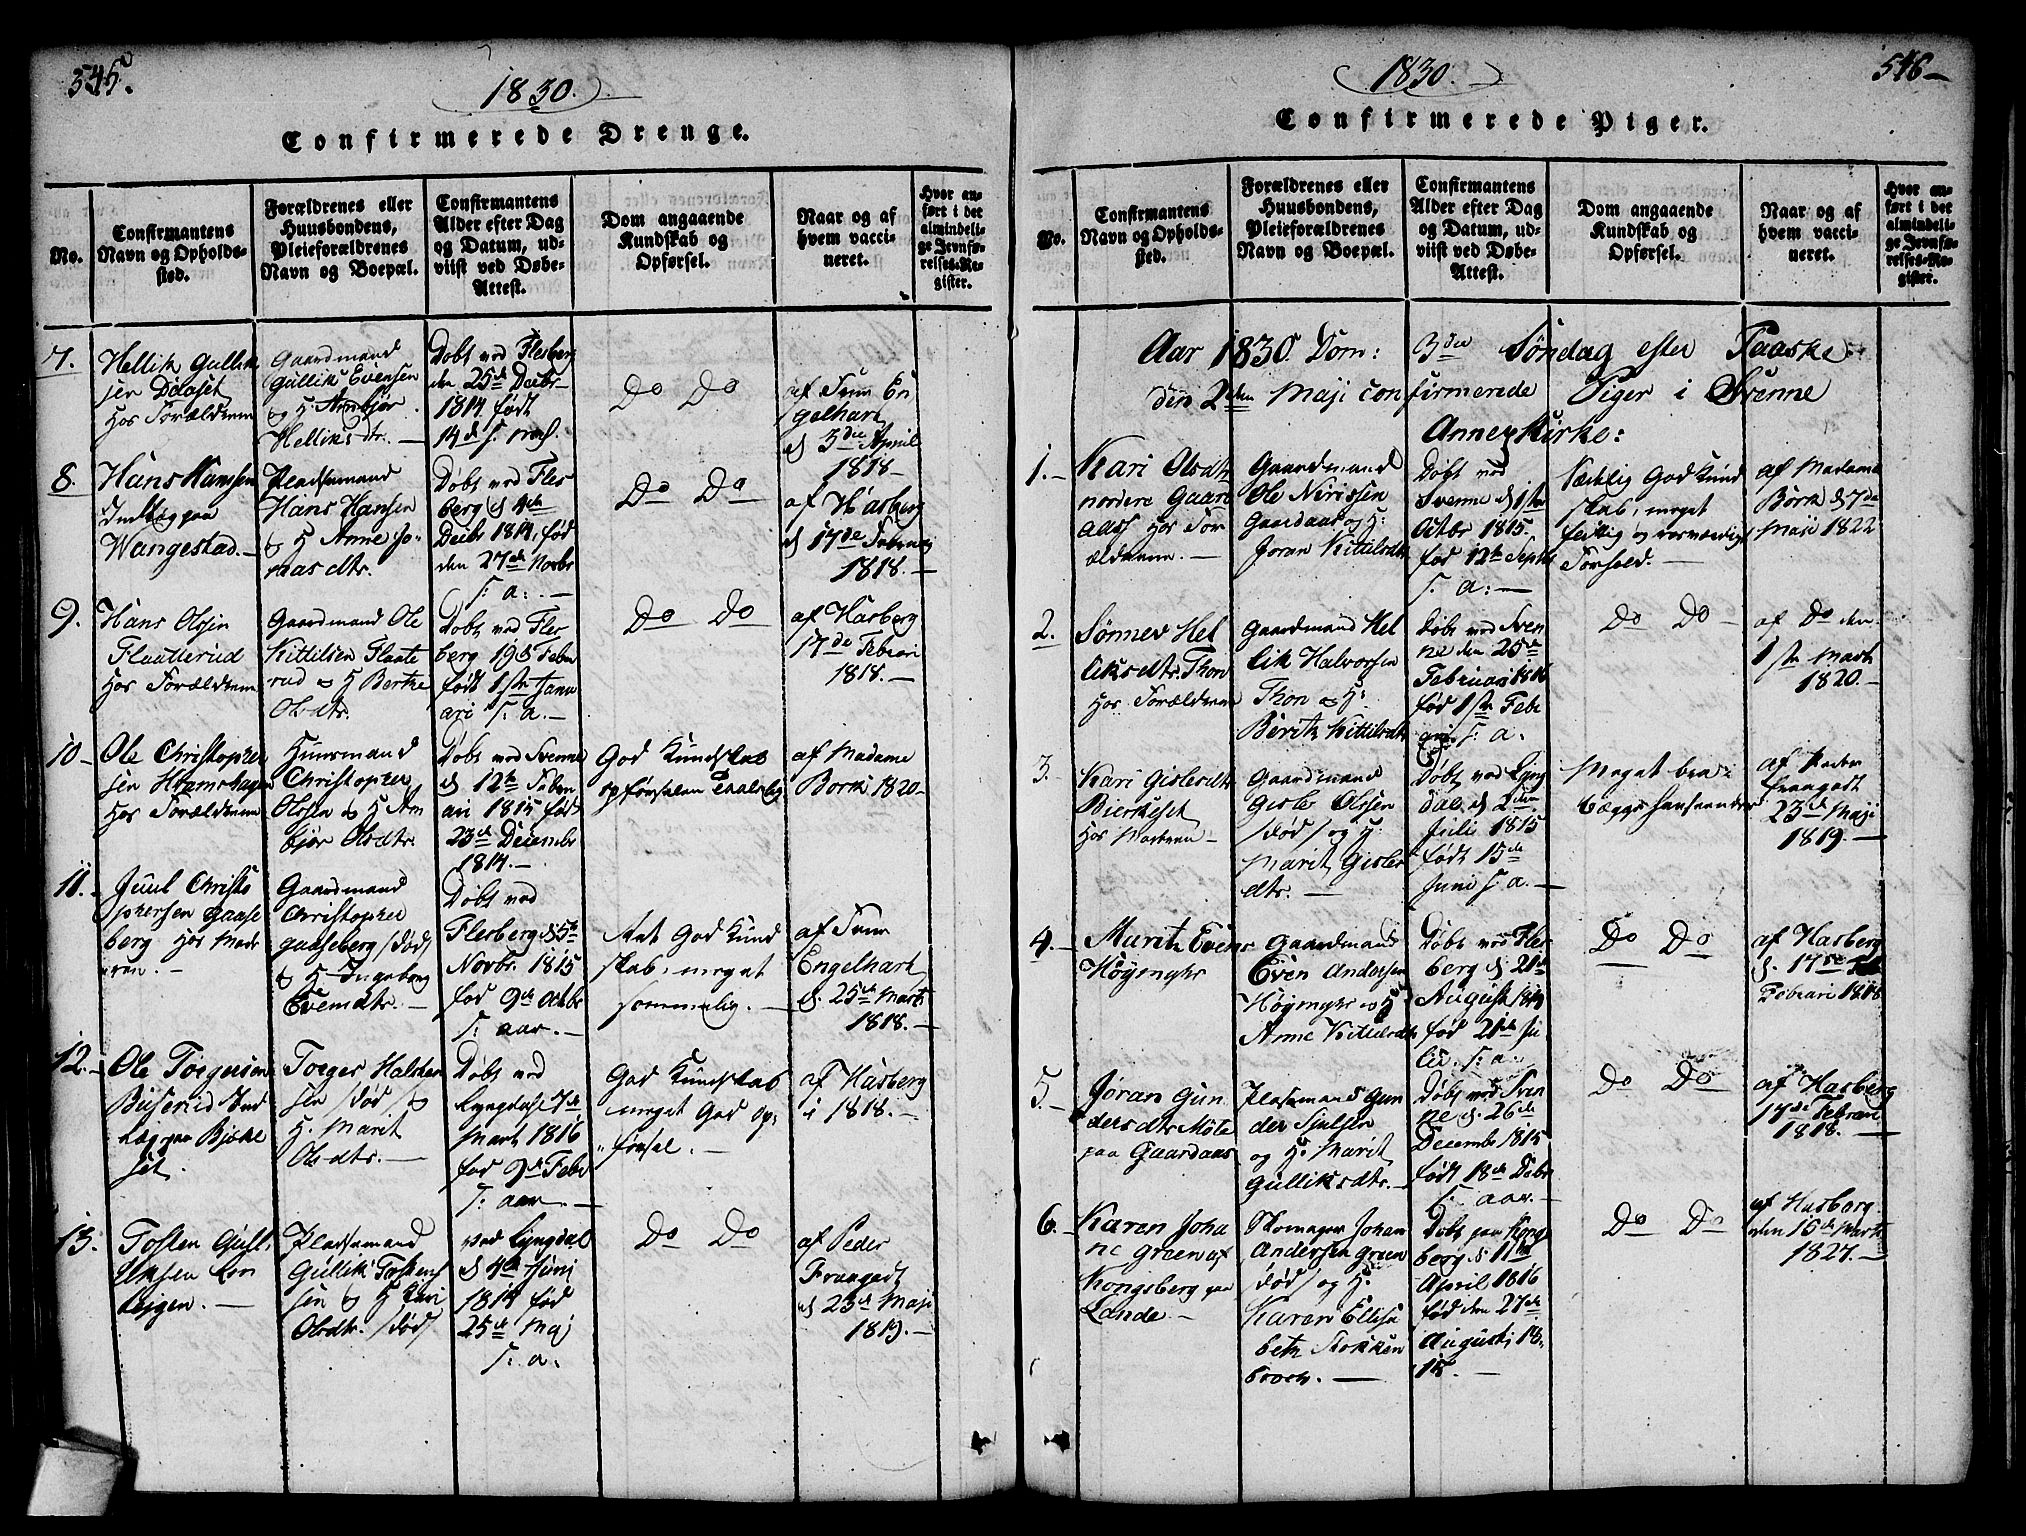 545.
1830.
Confirmerede Drenge.
No.
Confirmantens
Navn og Opholds-
sted.
Forældrenes eller
Huusbondens,
Pleieforældrenes
Navn og Boepæl.
Confirmantens
Alder efter Dag
og Datum, ud-
viist ved Døbe-
Attest.
Dom angaaende
Kundskab og
Opførsel.
Naar og af
hvem vacci-
neret.
Hvor an-
ført i det
almindeli-
ge Jevnfø-
relses-Re-
gister.
7.
Hellik Gullik
sen
Hos Forældrene
Gaardmand
Gullik Evensen
og H. Annbjør
Helliks dtr.
Døbt ved Flesberg
den 25de Decbr
1814 født
14 d. s. m.
Do Do
af Frue En
gelhart
d 3die April
1818
8.
Hans Hansen
Indlæg paa
Wangestad.
Pladsemand
Hans Hansen
og H Anne Jo-
raas dtr.
Døbt ved Fles
berg d 4de
Decbr 1814, fød
den 27de Novbr
s. a.
Do Do
af Hasberg
d 17de Februari
1818.
9.
Hans Olsen
Flaatterud
Hos Forældrene
Gaardmand Ole
Kittilsen Flaate
rud og H Berthe
Olsdtr.
Døbt ved Fles
berg 19 d Febru
født 1ste Janu
ari s. a.
Do Do
af Hasberg
17de Februari
1818.
10
Ole Christopher
sen Hramshagen
Hos Forældrene
Huusmand
Christopher
Olsen og H Ann
bjør Olsdtr.
Døbt ved Svenne
d 12te Febru
ari 1815 født
23de December
1814.
God Kundskab
opførselen
af Madame
Bork 1820
11.
Juul Christo
phersen Gaase
berg Hos Mode
ren.
Gaardmand
Christopher
Gaaseberg /død/
og H Ingeborg
Evensdtr.
Døbt ved
Flesberg d 5te
Novbr. 1815
fød 9de Octbr
s. aar.
God Kund
skab, meget
sømmelig.
af Frue
Engelhart
d. 25de Marts
1818.
12.
Ole Torgersen
Buserud Ind
læg paa Bjøke
set.
Torger Halsten
sen /død/ og
H. Marit
Olsdtr.
Døbt ved
Lyngdal 7de
Marts 1816
fød 9de Febr
s. aar
God Kundskab
meget God Op-
førsel.
af Hasberg
i 1818.
13.
Tosten Gul-
liksen

Pladsemand
Gullik Tostens
sen og H Kari
Olsdtr. /død/
ved Lyngdal
d 4de Junj
1814 fød
25de Maj
s. a.
Do Do
af Peder
Frøngedt
d 23de Maji
1819.
1830.
546
Confirmerede Piger.
No.
Confirmantens
Navn og Opholds-
sted.
Forældrenes eller
Huusbondens,
Pleieforældrenes
Navn og Boepæl.
Confirmantens
Alder efter Dag
og Datum, ud-
viist ved Døbe-
Attest.
Dom angaaende
Kundskab og
Opførsel.
Naar og af
hvem vacci-
neret.
Hvor an-
ført i det
almindeli-
ge Jevnfø-
relses-Re-
gister.
Aar 1830. Dom: 3die Søndag efter Paaske
den 2den Maji confirmerede Piger i Svenne
Annex Kirke:
1.
Kari Olsdtr
nordre Gaard
aas Hos For
ældrene.
Gaardmand
Ole Nirissen
Gaardaas og H:
Joran Kittilsdtr
Døbt ved
Svenne d 1ste
Octbr 1815.
fød 12te Septbr
s. a:
God Kund
skab, meget
flittig og
Forhold.
af Madame
Børk d 7de
Maji 1822
2.
Sønnev Hel
liksdtr. Thon
Hos Forældrene
Gaardmand Hel
lik Halvorsen
Thon og H:
Berith Kittilsdtr
Døbt ved Sven
ne den 25de
Februari 1816
fød 1ste Febr
uari s. a.
Do Do
af Do den
1ste Marts
1820.
3.
Kari Gislesdtr
Bierkeset
Hos Moderen
Gaardmand
Gisle Olssen
/død/ og H:
Marit Gisles
dtr.
Døbt ved Lyng
dal d 2den
Julii 1815
født 15de
Juni s. a.
Meget bra
af Peder
Frøngedt
23de Maji
1819.
4.
Marit Evens
Høymyhr
Gaardmand
Even Andersen
Høymyhr og H
Anne Kittilsdtr
Døbt ved Fles
berg d. 21de
August 1814
fød 21de Ju
lii. s. a.
Do Do
af Hasberg
d. 17de
Februari 1818
5.
Jøran Gun
dersdtr Møte
paa Gaardaas
Pladsemand Gun
der Sjulsen
og H. Marit
Gulliksdtr.
Døbt ved Sven
ne d. 26de
December 1815
født 18de Dcbr
s. aar.
Do Do
af Hasberg
17de Februari
1818.
6.
Karen Joha
ne Green af
Kongsberg paa
Lande.
Skomager Johan
Andersen Green
/død/ og H.
Karen Elisa
beth Stokken
broch.
Døbt paa Kong
berg d 11te
April 1816
fød den 27de
August, 18-
15.
Do Do
af Hasberg
den 15de Marts
1827.